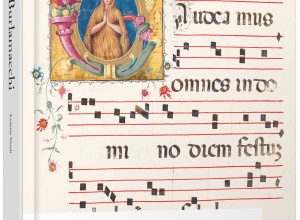 Burlamacchi
Audea mus
omnes in do
mi no diem festuz